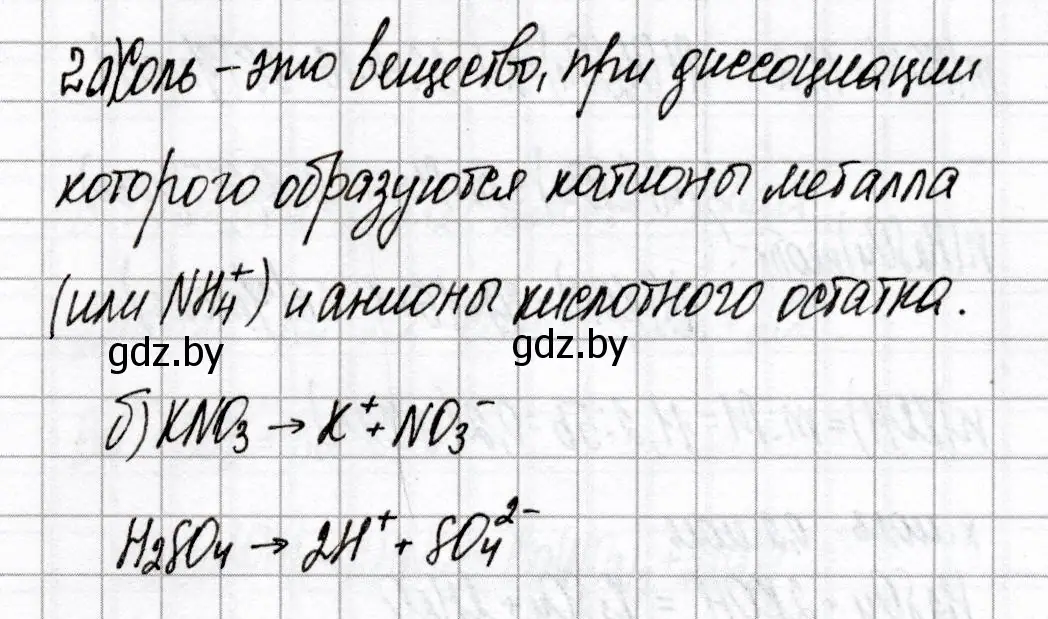 2а) Соль – это вещество, при диссоциации
которого образуются катионы металла
(или NH₄⁺) и анионы кислотного остатка.
gdz.by gdz.by
б) KNO₃ → K⁺ + NO₃⁻
H₂SO₄ → 2H⁺ + SO₄²⁻